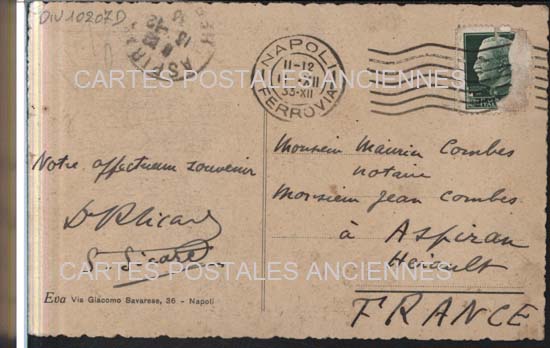 DIV 10207D
ASPIRAN
NAPOLI
11-12
XII
33-XII
FERROVIA
CARTES POSTALES ANCIENNES
Notre affectueux souvenir
Monsieur Maurice Combes
notaire
Monsieur Jean Combes
à Aspiran
Hérault
FRANCE
CARTES POSTALES ANCIENNES
Eva Via Giacomo Savarese, 36 - Napoli